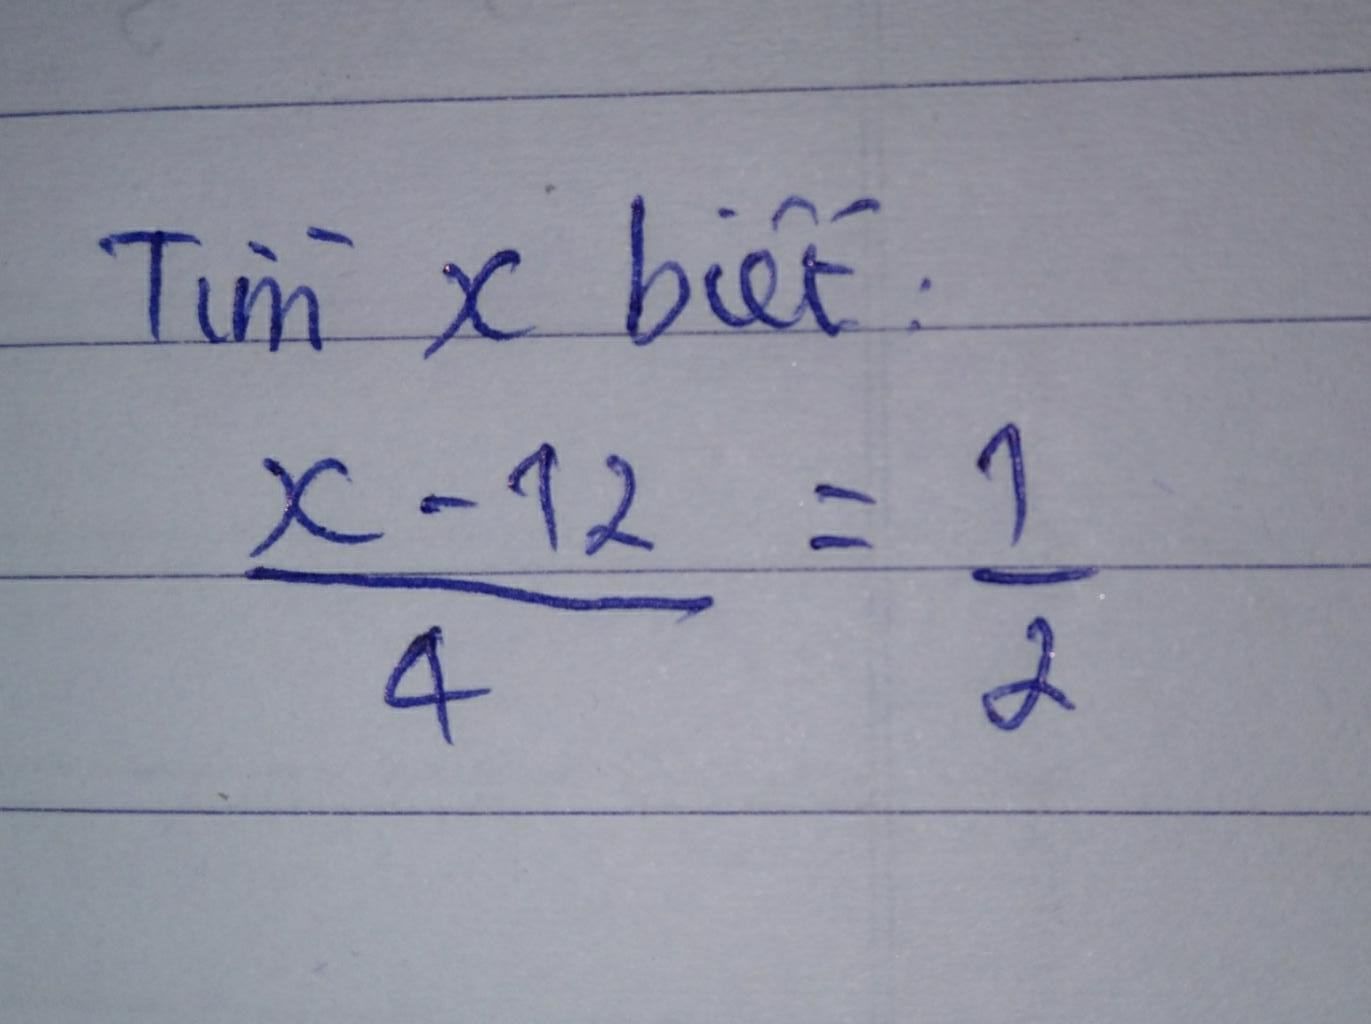 Tìm x biết:
x - 12 = 1
4 2